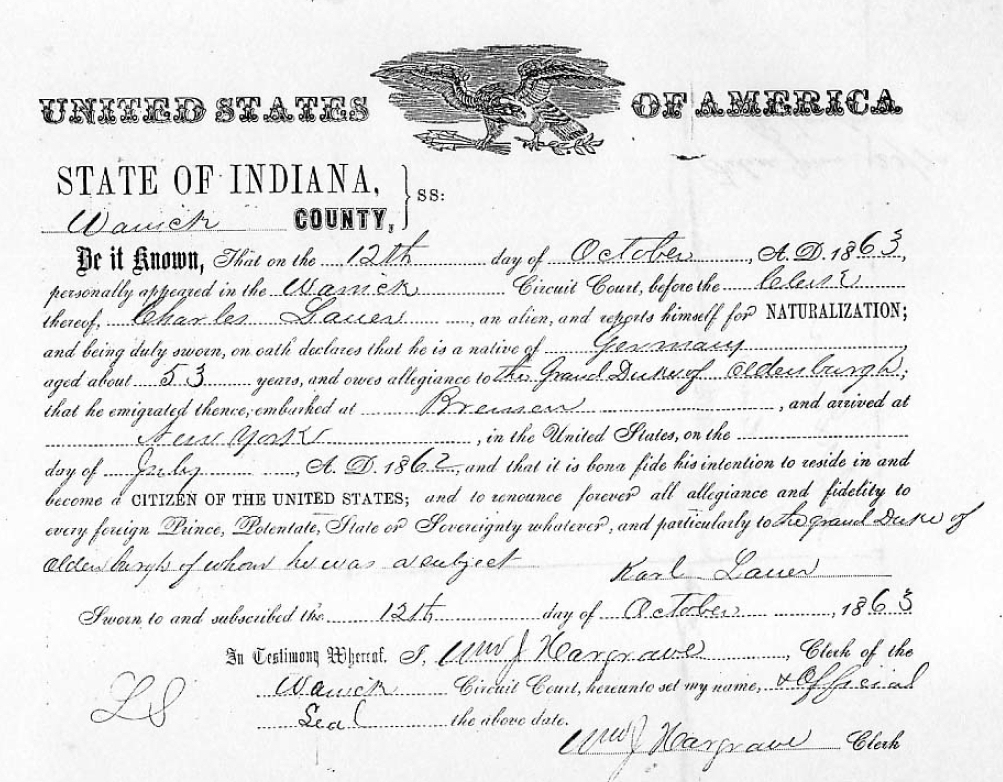 UNITED STATES OF AMERICA
STATE OF INDIANA,
Warrick COUNTY, } SS:
Be it Known, That on the 12th day of October, A. D. 1863,
personally appeared in the Warrick Circuit Court, before the Clerk
thereof, Charles Lauer, an alien, and reports himself for NATURALIZATION;
and being duly sworn, on oath declares that he is a native of Germany,
aged about 53 years, and owes allegiance to the Grand Duke of Oldenburgh;
that he emigrated thence; embarked at Bremen, and arrived at
New York, in the United States, on the
day of July, A. D. 1862, and that it is bona fide his intention to reside in and
become a CITIZEN OF THE UNITED STATES; and to renounce forever all allegiance and fidelity to
every foreign Prince, Potentate, State or Sovereignty whatever, and particularly to the grand Duke of
Oldenburgh of whom he was a subject
Karl Lauer
Sworn to and subscribed the 12th day of October, 1863
In Testimony Whereof, I, Wm J Hargrave, Clerk of the
Warrick Circuit Court, hereunto set my name, & Official
Seal the above date.
LS
Wm J Hargrave Clerk